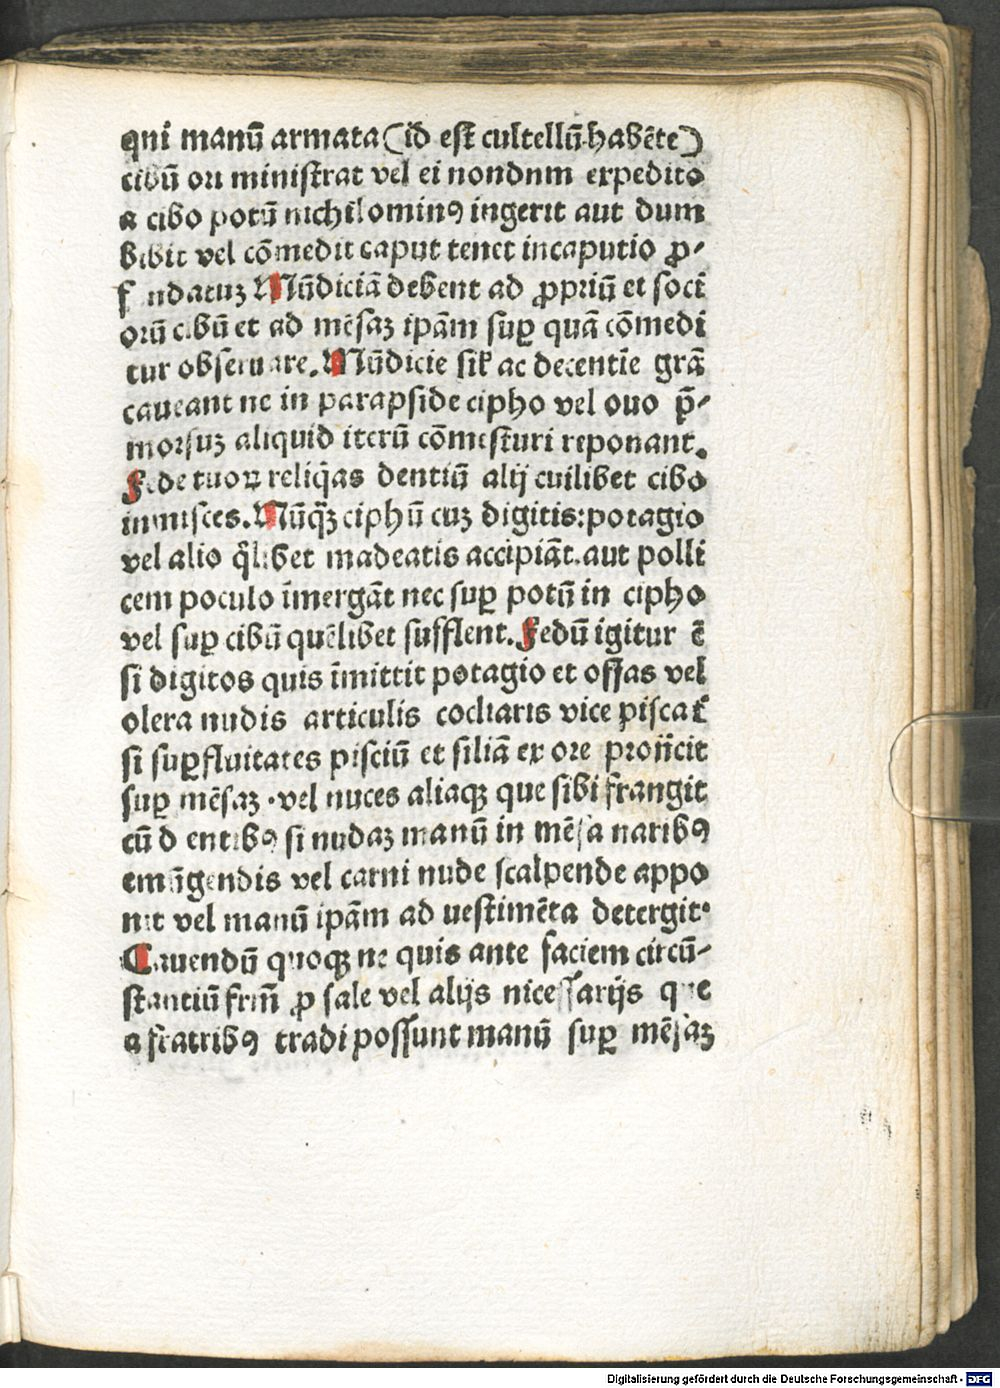 qui manū armata (id est cultellū habēte)
cibū ori ministrat vel ei nondum expedito
a cibo potū nichilominꝰ ingerit aut dum
bibit vel cōmedit caput tenet in caputio ꝓ-
fundatuʒ Mūdiciā debent ad ꝓpriū et soci
orū cibū et ad mēsaʒ ipām suꝑ quā cōmedi
tur obseruare. Mūdicie sil̉ ac decentie grā
caueant ne in parapside cipho vel ouo p̄-
morsuʒ aliquid iterū cōmesturi reponant.
Fede tuoꝝ reliq̄as dentiū alij cuilibet cibo
inmisces. Nūq̄ʒ ciphū cuʒ digitis: potagio
vel alio q̄libet madeatis accipiāt. aut polli
cem poculo īmergāt nec suꝑ potū in cipho
vel suꝑ cibū quēlibet sufflent. Fedū igitur ē
si digitos quis īmittit potagio et offas vel
olera nudis articulis cocliaris vice piscat̉
si suꝑfluitates pisciū et siliā ex ore proijcit
suꝑ mēsaʒ . vel nuces aliaqꝫ que sibi frangit
cū dentibꝰ si nudaʒ manū in mēsa naribꝰ
emūgendis vel carni nude scalpende appo
nit vel manū ipām ad uestimēta detergit.
Cauendū quoqꝫ ne quis ante faciem circū-
stantiū frm̄ ꝓ sale vel alijs nicessarijs que
a fratribꝰ tradi possunt manū suꝑ mēsaʒ
Digitalisierung gefördert durch die Deutsche Forschungsgemeinschaft - DFG